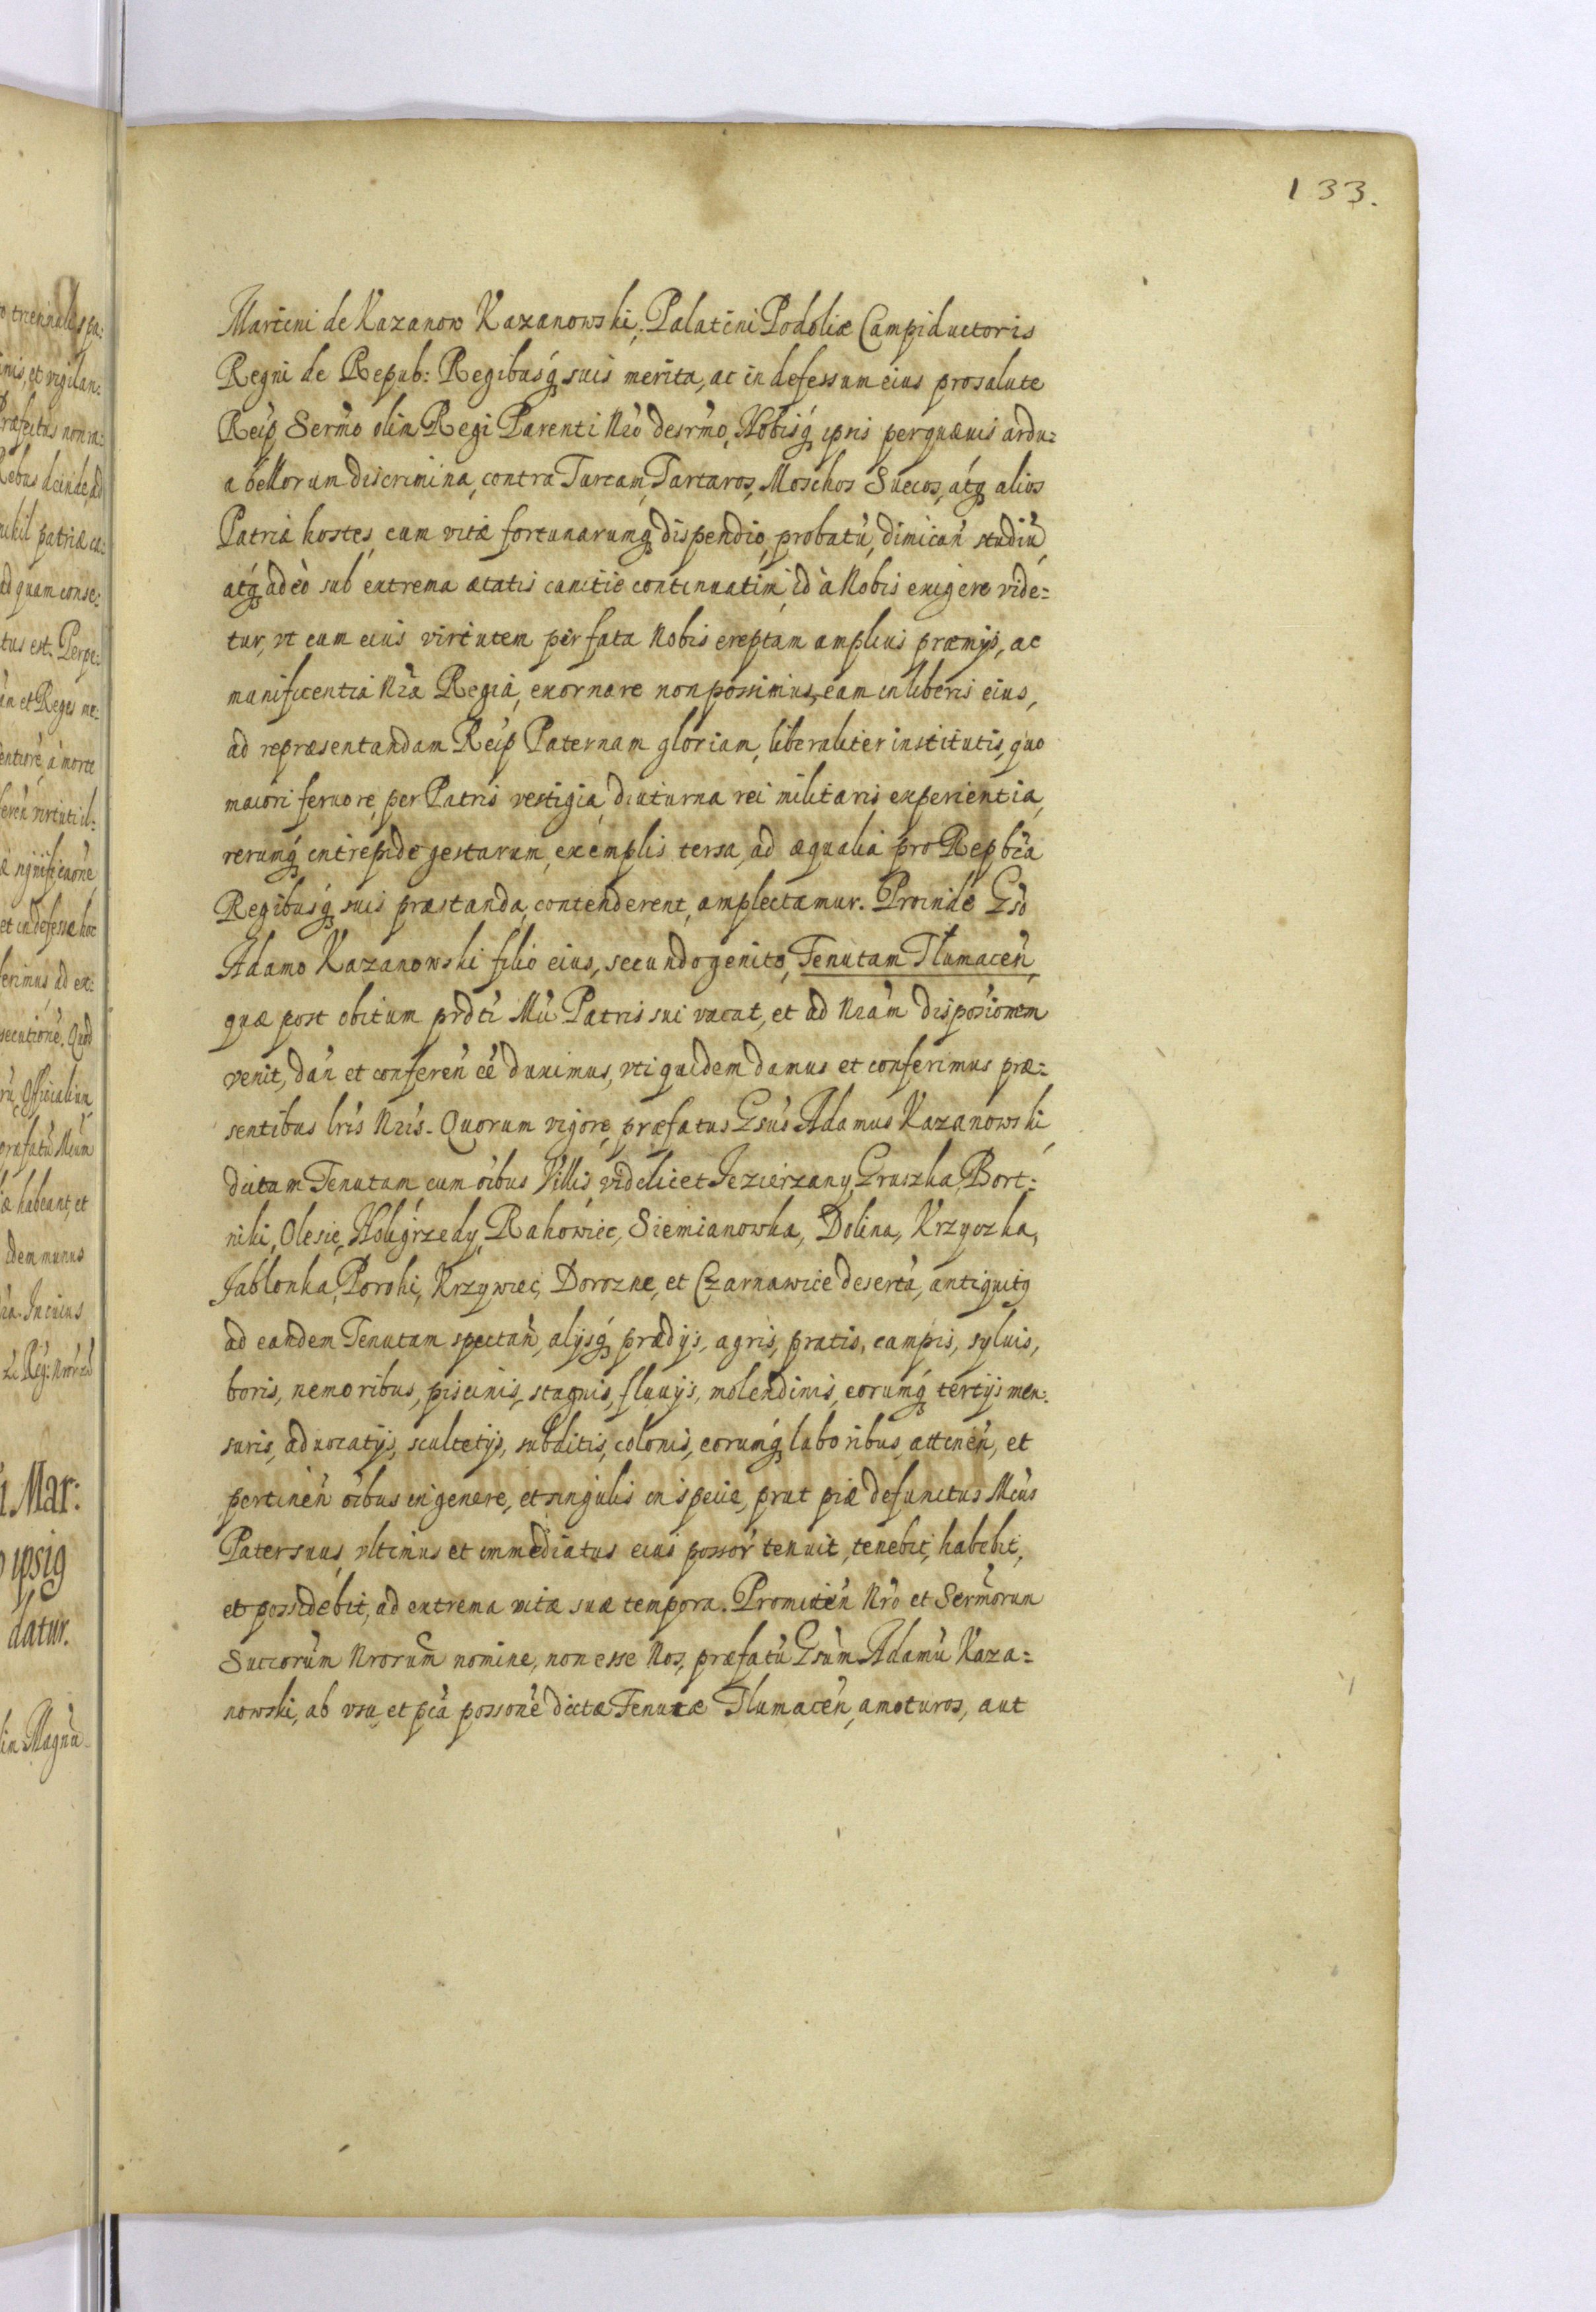 133.
Martini de Kazanow Kazanowski, Palatini Podoliæ Campiductoris
Regni de Repub: Regibusq́ suis merita, ac indefessum eius pro salute
Reip, Serm̃o olim Regi Parenti Nr̃o desr̃mo, Nobisq́ ipsis perquævis ardu=
a bellorum discrimina, contra Turcam, Tartaros, Moschos Suecos, átq alios
Patriæ hostes, cum vitæ fortunarumq́ dispendio, probatũ, dimicañ studiũ,
atq́ adeò sub extrema ætatis canitie continuatim̃, id à Nobis exigere vide=
tur, vt cum eius virtutem per fata Nobis ereptam amplius præmijs, ac
manificentia Nr̃a Regia, exornare non possimus, eam in liberis eius,
ad repræsentandam Reip Paternam gloriam, liberaliter institutis, quo
maiori feruore, per Patris vestigia, diuturna rei militaris experientia,
rerumq́ intrepide gestarum, exemplis tersa, ad æqualia pro Repbc̃a
Regibusq́ suis præstanda, contenderent, amplectamur. Proinde Gs̃o
Adamo Kazanowski filio eius, secundogenito, Tenutam Tlumaceñ,
quæ post obitum prdt̃i Mc̃i Patris sui vacat, et ad Nr̃am disposiõnem
venit, dañ et confereñ c̃e duximus, vti quidem damus et conferimus præ=
sentibus lr̃is Nr̃is. Quorum vigore, præfatus Gs̃us Adamus Kazanowski,
dictam Tenutam cum oĩbus Villis videlicet Jezierzany, Gruszka, Bort=
niki, Olesie, Holigrzedy, Rakowiec, Siemianowka, Dolina, Krzyozka,
Jablonka, Porohi, Krzywiec, Dorozne, et Czarnawice deserta, antiquitq
ad eandem Tenutam spectañ, alijsq́ prædijs, agris, pratis, campis, syluis,
boris, nemoribus, piscinis, stagnis, fluuijs, molendinis, eorumq́ tertijs men=
suris, aduocatijs, scultetijs, subditis, colonis, eorumq́ laboribus, attineñ, et
pertineñ oĩbus in genere, et singulis in specie, prut piæ defunctus Mc̃us
Pater suus, vltimus et immediatus eius possor̃ tenuit, tenebit, habebit,
et possidebit, ad extrema vitæ suæ tempora. Promitteñ Nr̃o et Serm̃orum
Succorũm Nrorum̃ nomine, non esse Nos, præfatũ Gs̃um Adamũ Kaza=
nowski, ab vsu, et pc̃a possonẽ dictæ Tenutæ Tlumaceñ, amoturos, aut